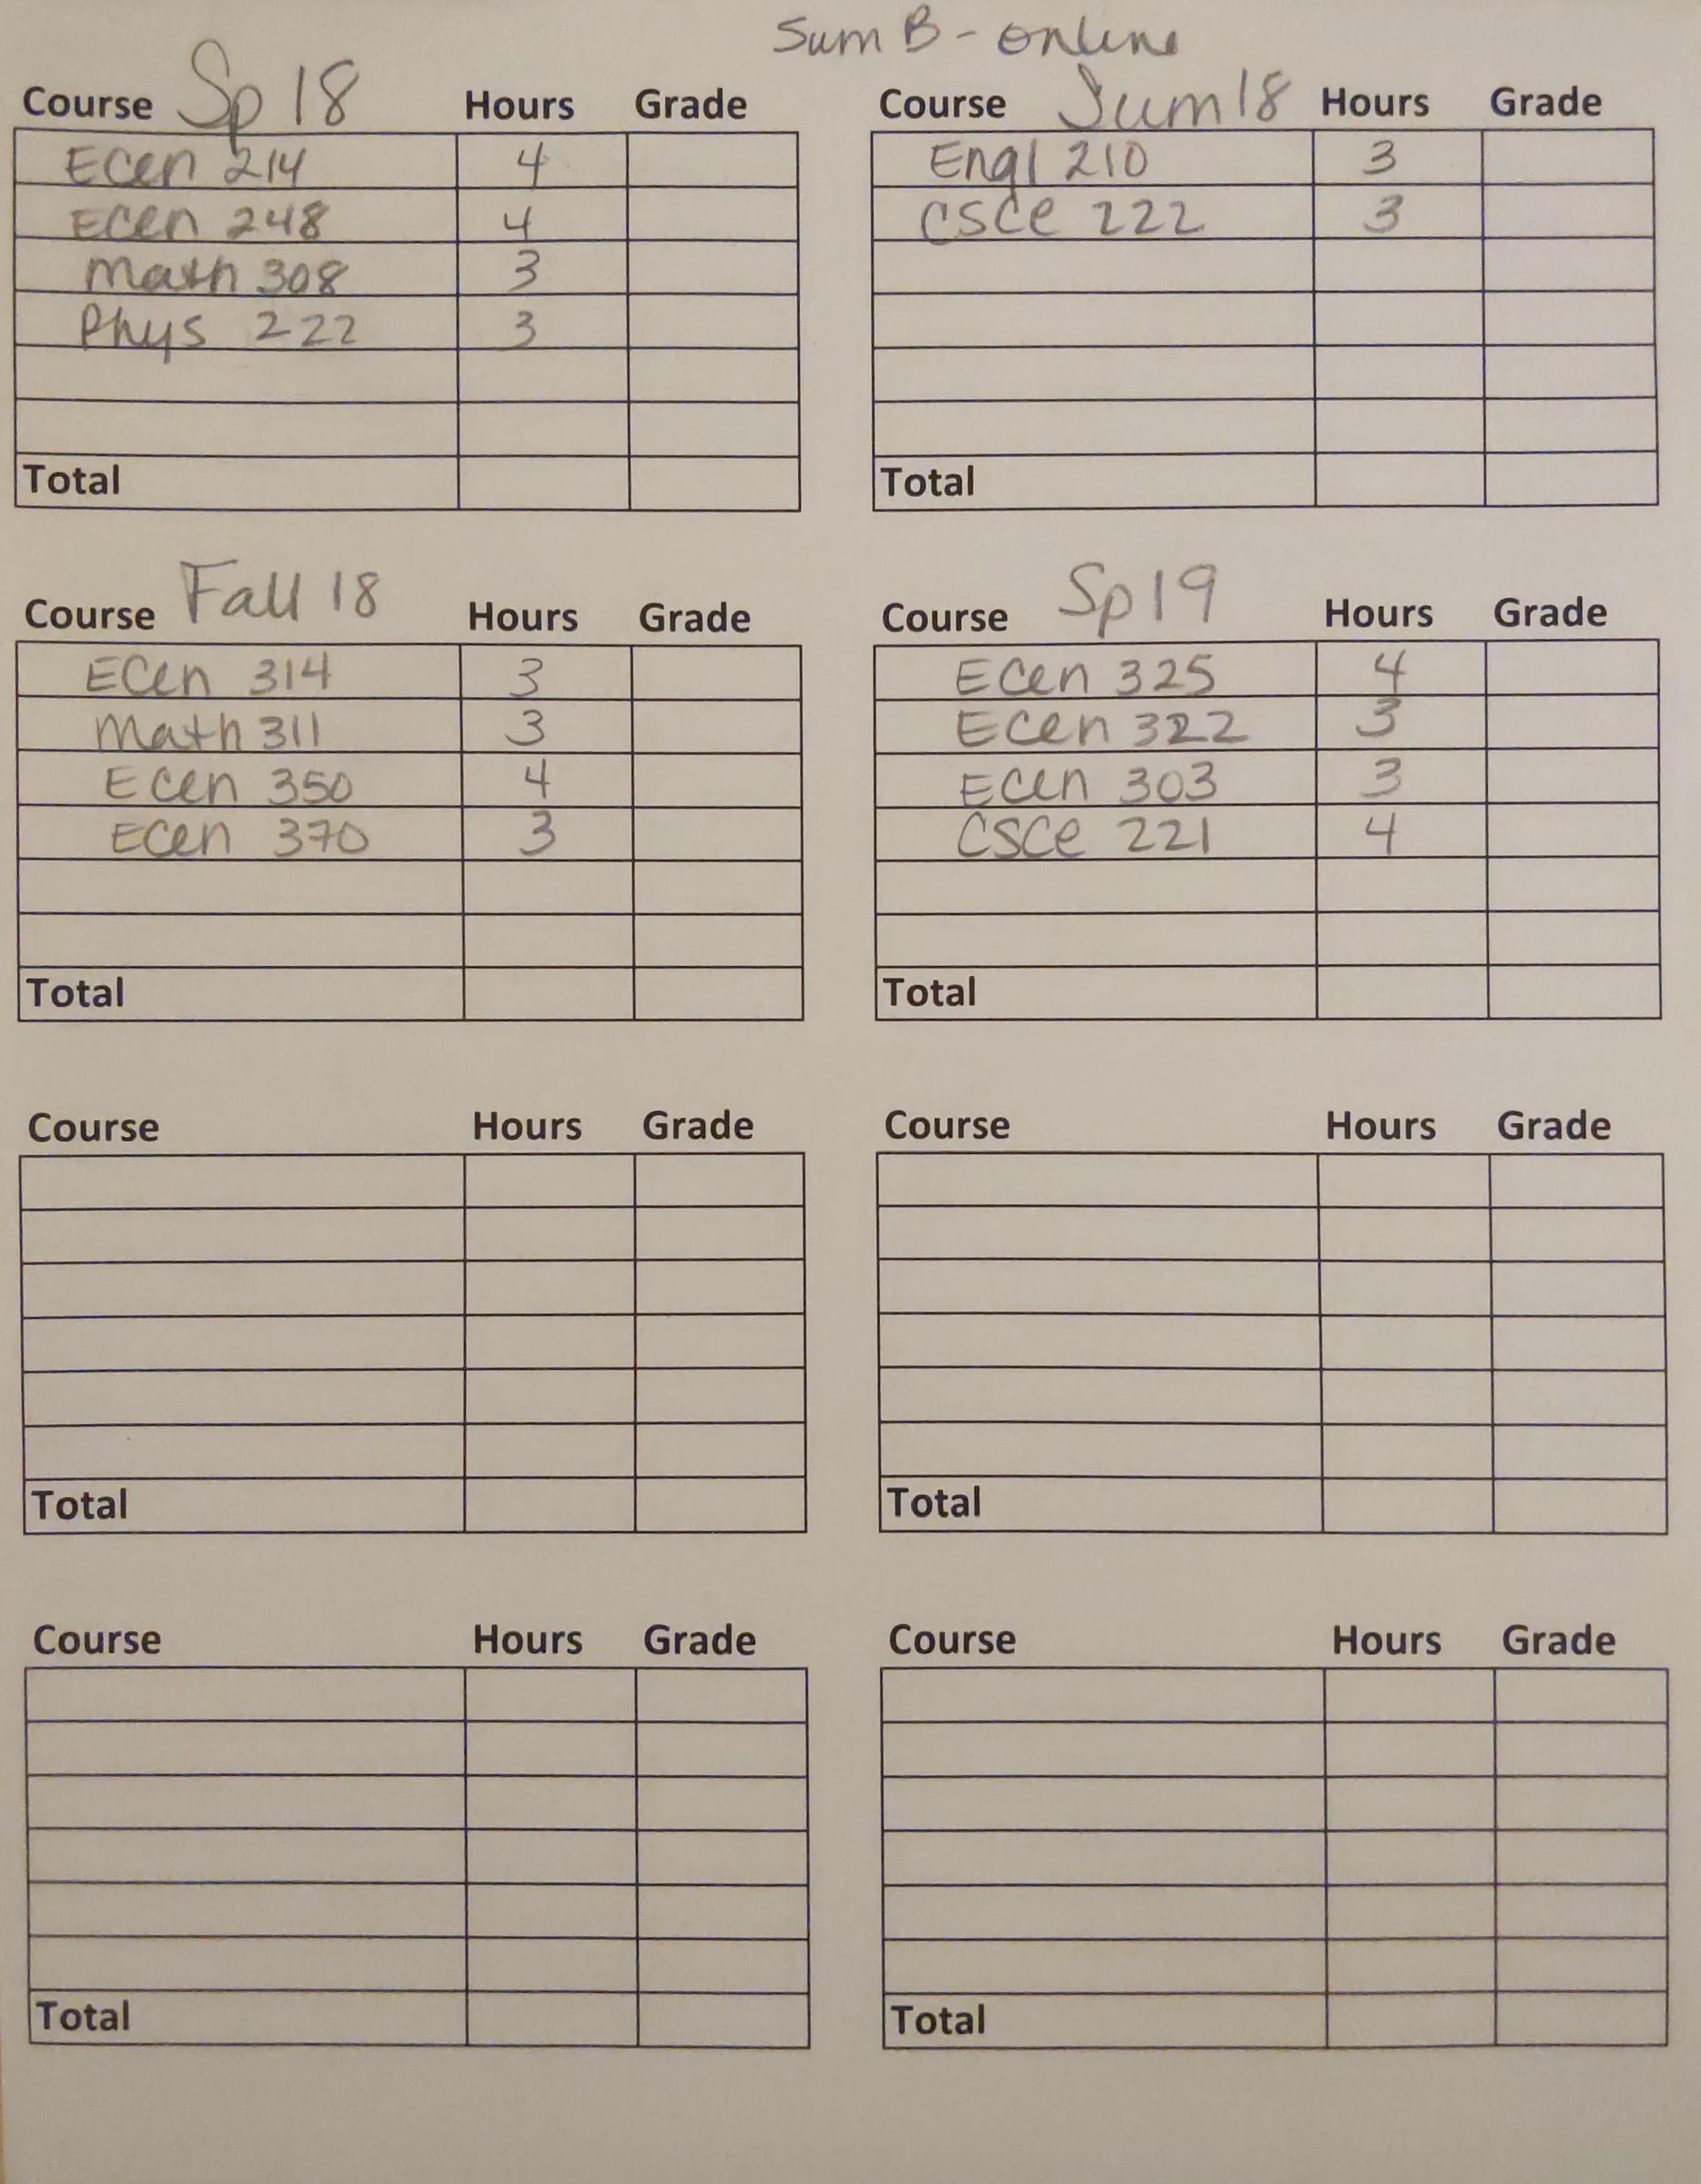 Sum B - online
Course Sp 18 Hours Grade
Ecen 214 4
Ecen 248 4
Math 308 3
Phys 222 3
Total
Course Sum 18 Hours Grade
Engl 210 3
CSCe 222 3
Total
Course Fall 18 Hours Grade
ECen 314 3
Math 311 3
Ecen 350 4
Ecen 370 3
Total
Course Sp 19 Hours Grade
Ecen 325 4
Ecen 322 3
Ecen 303 3
CSCe 221 4
Total
Course Hours Grade
Total
Course Hours Grade
Total
Course Hours Grade
Total
Course Hours Grade
Total